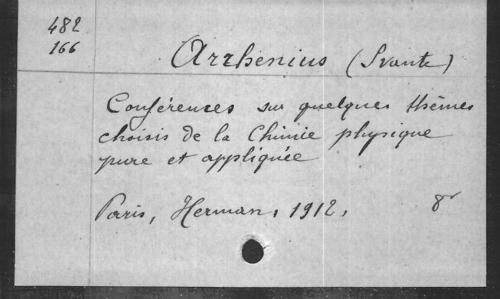 482
166
Arrhenius (Svante)
Conférences sur quelques thèmes
choisis de la Chimie physique
pure et appliquée
Paris, Herman, 1912, 8º